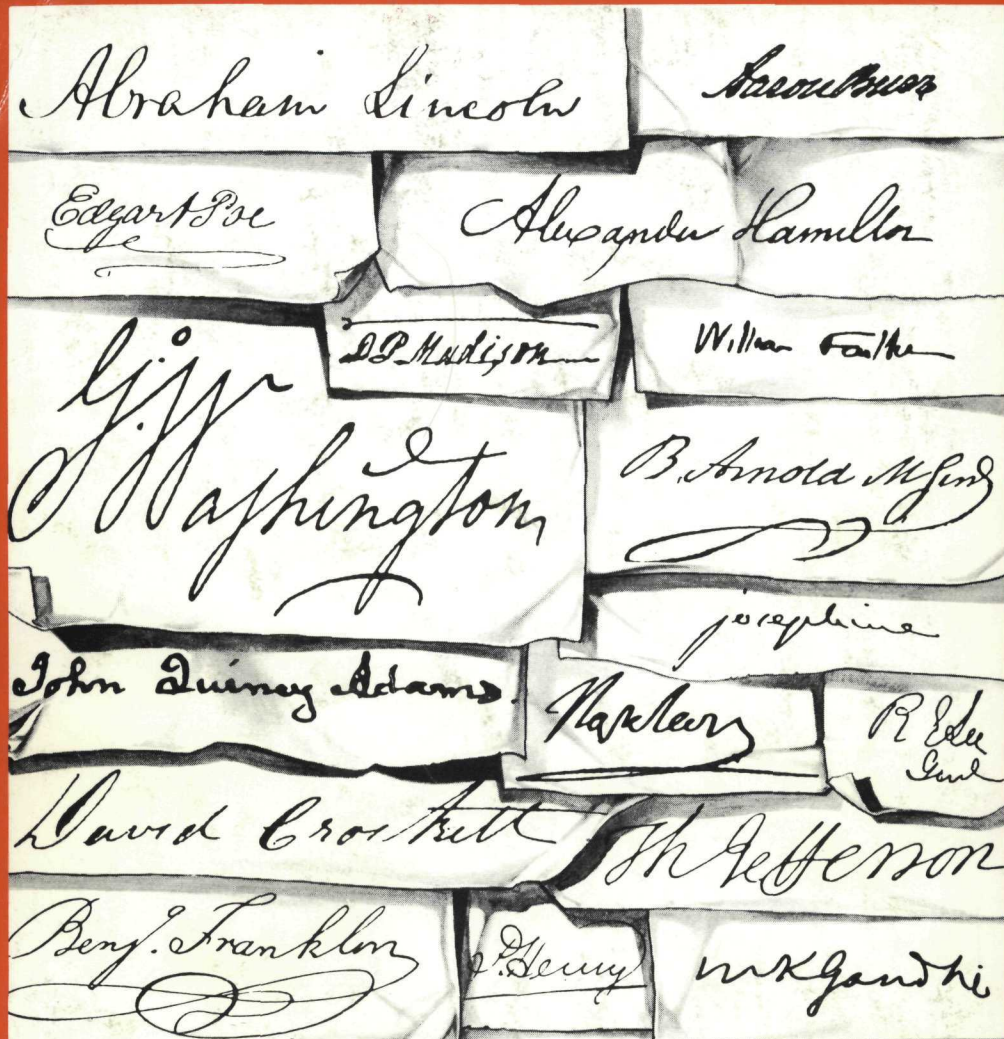 Abraham Lincoln
Aaron Burr
Edgar A Poe
Alexander Hamilton
D.P. Madison
William Faulkner
G. Washington
B. Arnold M Genl
josephine
John Quincy Adams.
Napoleon
R E Lee
Genl
David Crockett
Th Jefferson
Benj. Franklin
P. Henry
mKGandhi